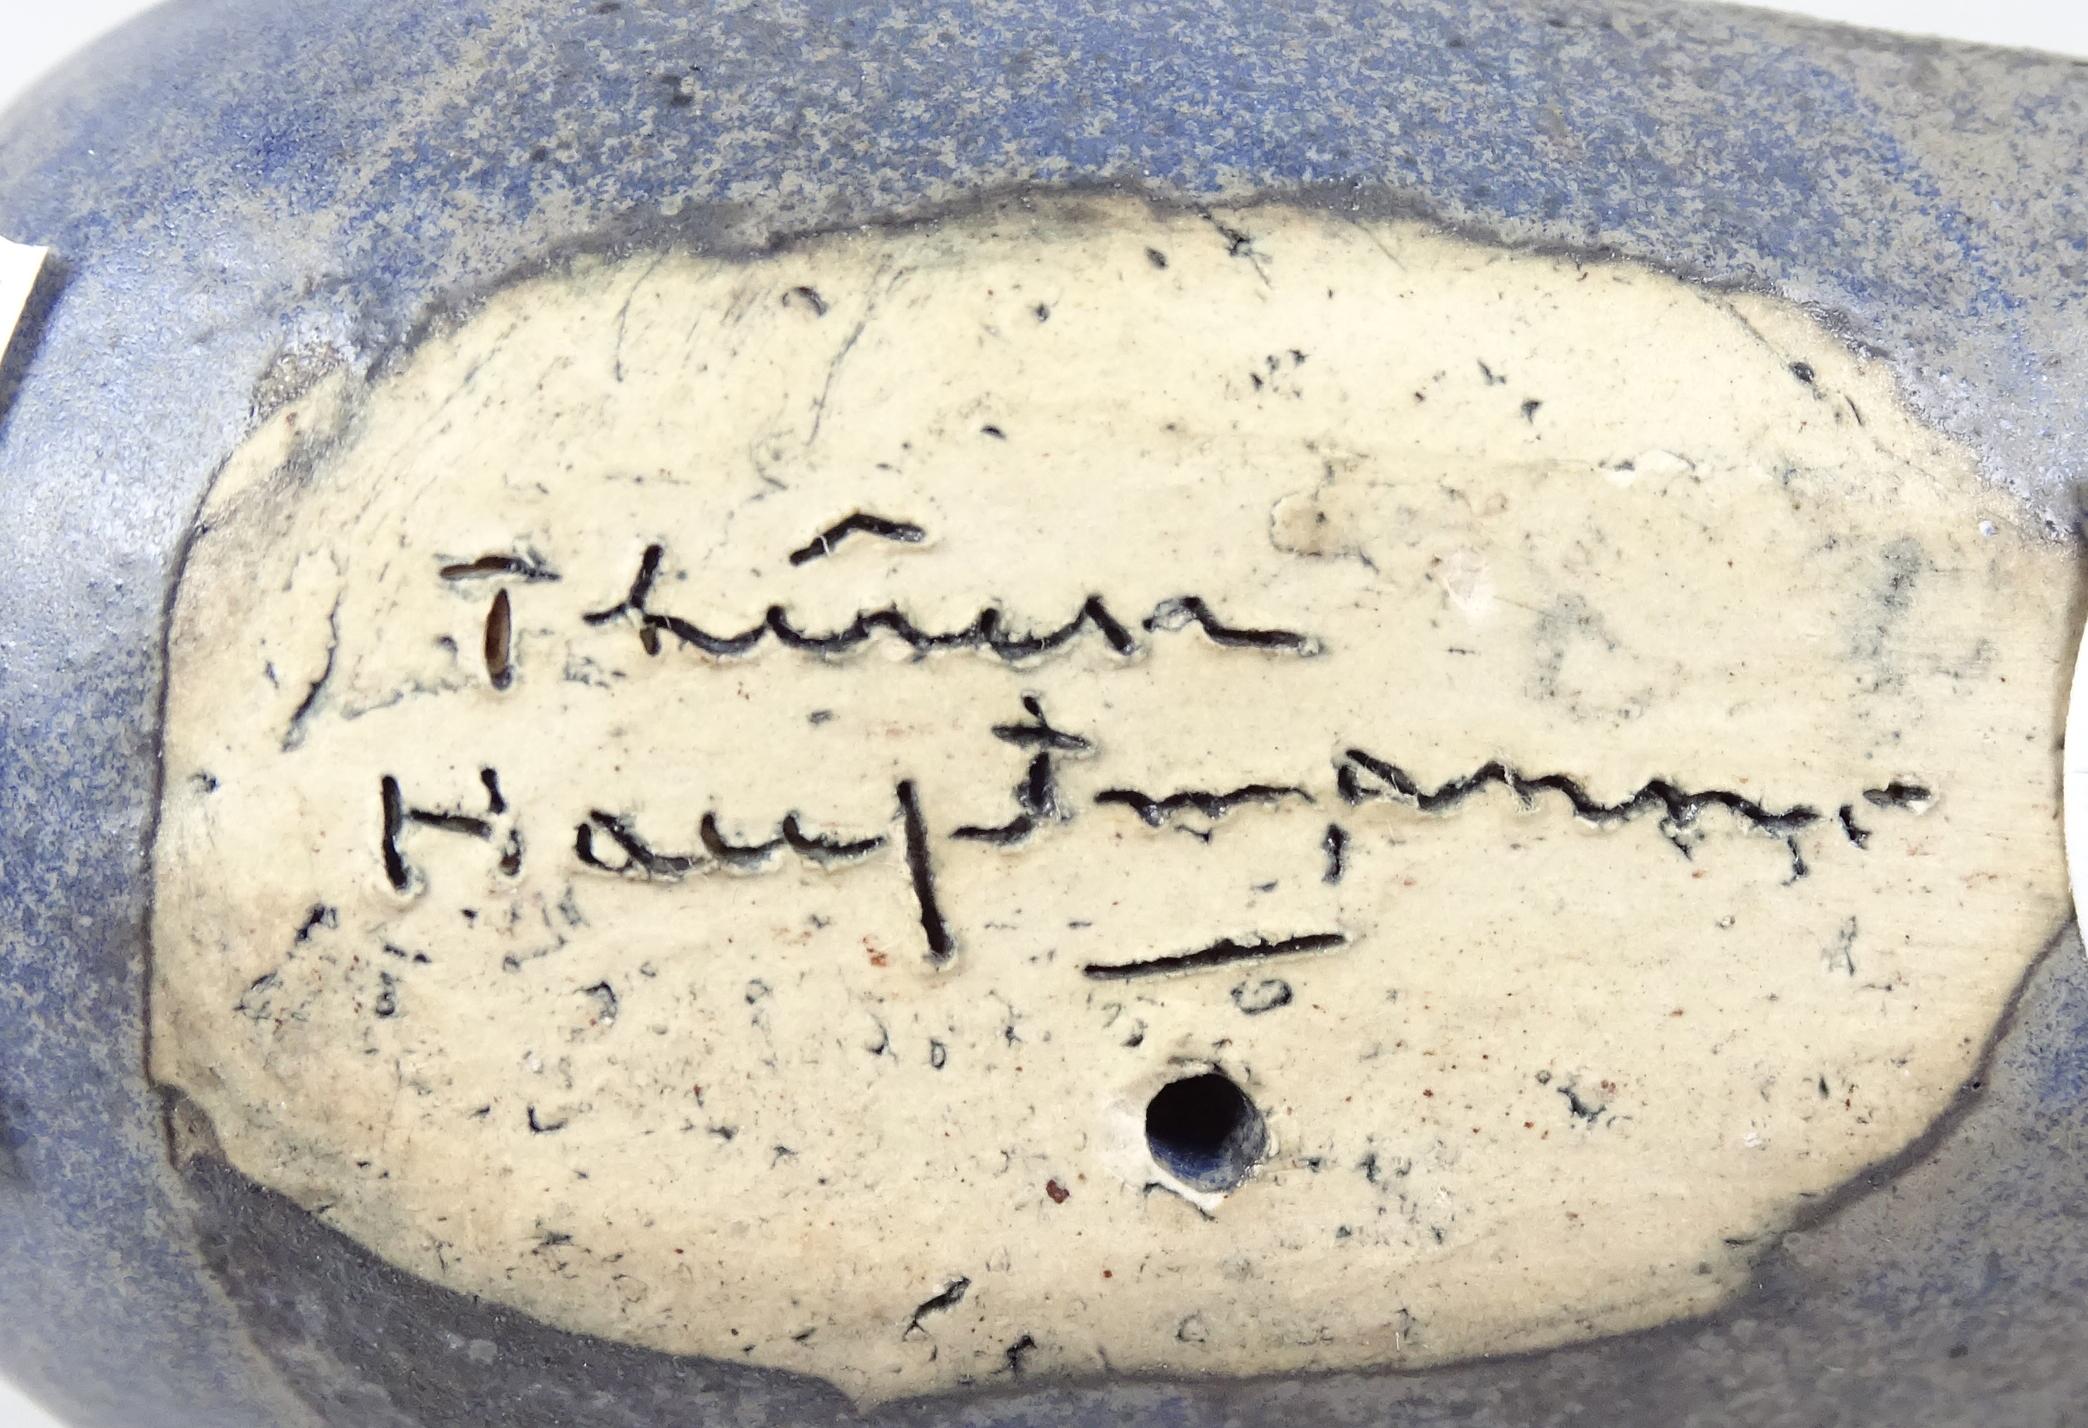 Thêresa
Hauptmann